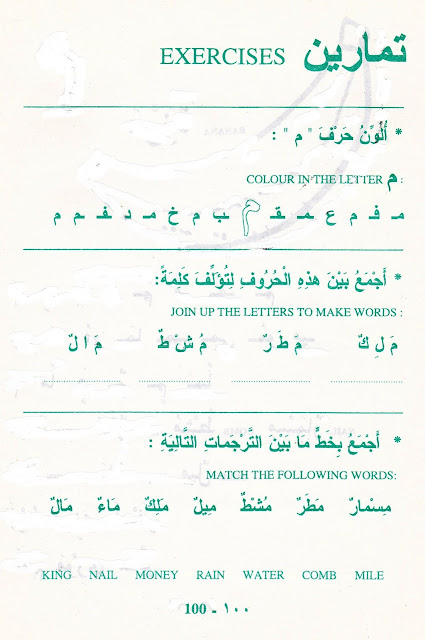 EXERCISES تمارين
* أُلَوِّنُ حَرْفَ " م " :
COLOUR IN THE LETTER م :
مـ فـ م ع ـمـ ـقـ م ب م خ مـ د ـفـ ـحـ م م
* أَجْمَعُ بَيْنَ هذِهِ الْحُرُوفِ لِتُؤَلِّفَ كَلِمَةً:
JOIN UP THE LETTERS TO MAKE WORDS :
مَ لِ كٌ مَ طَ رٌ مُ شْ طٌ مَ ا لٌ
* أَجْمَعُ بِخَطٍّ مَا بَيْنَ التَّرْجَماتِ التَّالِيَةِ :
MATCH THE FOLLOWING WORDS:
مِسْمارٌ مَطَرٌ مُشْطٌ مِيلٌ مَلِكٌ مَاءٌ مَالٌ
KING NAIL MONEY RAIN WATER COMB MILE
100 - ١٠٠